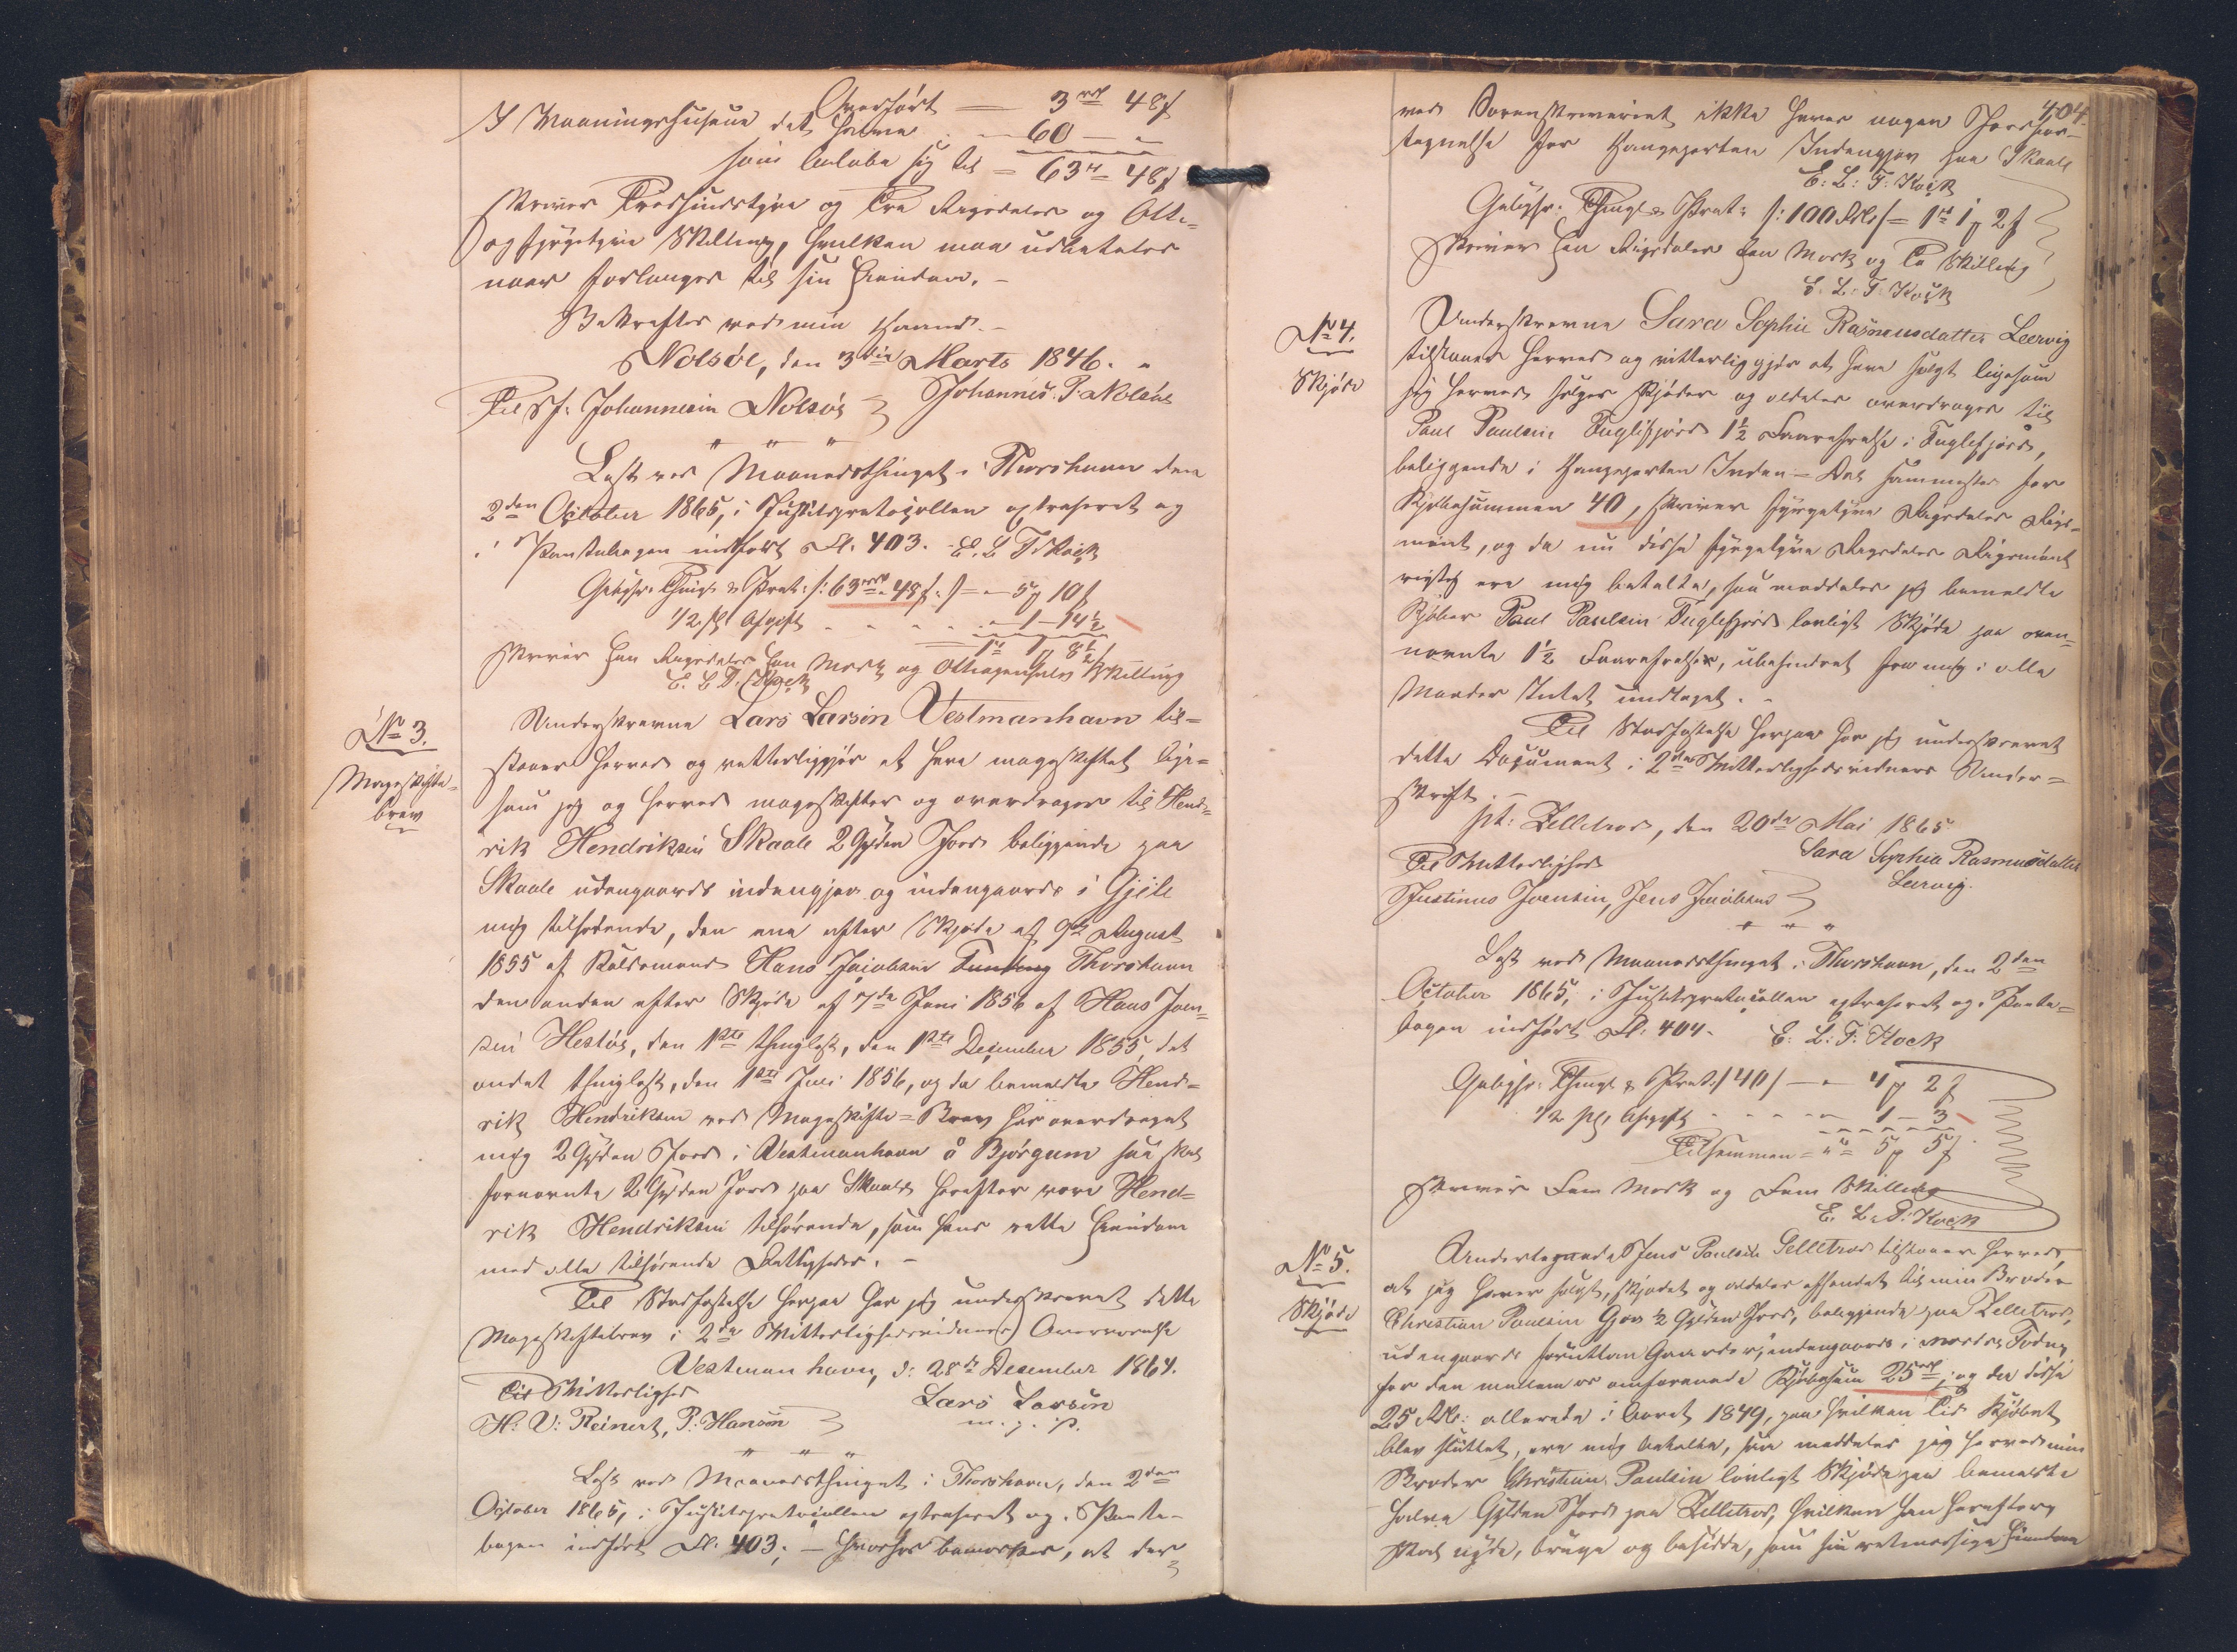 Overført — 3 rd 48 ß
I Vaaningshusene det halve . — 60 — "
som beløbe sig til = 63 rd 48 ß
skriver Tredsindstyve og Tre Rigsdaler og Otte-
og fyrgetyve Skilling, hvilken maa udbetales
naar forlanges til sin Eiendom. –
Bekræftes ved min Haand. –
Nolsöe, den 3die Marts 1846. "
Til Sf. Johannesin Nolsöe Johannes P. Nolsöe
" " "
Læst ved Maanedsthinget i Thorshavn den
2den October 1865, i Justitsprotocollen extraheret og
i Pantebogen indført Fl. 403. E. L. T. Kock
Gebyhr. Thingl. & Prot: /: 63 rd 48 ß :/ = – 5 ꝑ 10 ß
1/2 pCt Afgift - - - - - 1 – 14 1/2
1 rd 1 ꝑ 8 1/2 ß
skriver Een Rigsdaler Een Mark og Otteogenhalv Skilling
E. L. T. Kock
No 3.
Mageskifte-
brev
Underskrevne Lars Larsin Vestmanhavn til-
staaer herved og vitterliggjør at have mageskiftet lige-
som jeg og herved mageskifter og overdrager til Hend-
rik Hendriksin Skaale 2 Gylden Jord beliggende paa
Skaale udengaards indengjær og indengaards i Gjile
mig tilhørende, den ene efter Skjøde af 9de August
1855 af Kulsømand Hans Jacobsin Thorshavn
den anden efter Skjøde af 7de Juni 1856 af Hans Joen-
sin Hestöe, den 1ste thinglæst, den 1ste December 1855, det
andet thinglæst, den 1ste Juli 1856, og da bemeldte Hend-
rik Hendriksin ved Mageskifte-Brev har overdraget
mig 2 Gylden Jord i Vestmanhavn å Bjørgum saa skal
fornævnte 2 Gylden Jord paa Skaale herefter være Hend-
rik Hendriksin tilhørende, som hans rette Eiendom
med alle tilhørende Rettigheder. –
Til Stadfæstelse herpaa har jeg underskrevet dette
Mageskiftebrev i 2de Vitterlighedsvidners Overværelse
Vestmanhavn, d: 28de December 1864.
Til Vitterlighed Lars Larsin
H: D: Reinert, P. Hansen m. f. P.
" " "
Læst ved Maanedsthinget i Thorshavn, den 2den
October 1865, i Justitsprotocollen extraheret og i Pante-
bogen indført Fl. 403; – hvorhos bemærkes, at der
404.
ved Sorenskriveriet ikke haves nogen Jordfor-
tegnelse for Haugeparten Indengjær paa Skaale
E: L: T: Kock
Gebyhr. Thingl & Prot: /: 100 Rdl / = 1 rd 1 ꝑ 2 ß
skriver Een Rigsdaler Een Mark og To Skilling
E. L. T. Kock
No 4.
Skjøde
Underskrevne Sara Sophie Rasmusdatter Leervig
tilstaaer herved og vitterliggjør at have solgt ligesom
jeg herved sælger skjøder og aldeles overdrager til
Paul Paulsin Fuglefjord 1 1/2 Faarefrælse i Fuglefjord,
beliggende i Haugeparten Inden-Dal sammesteds for
Kjøbesummen 40, skriver fyrgetyve Rigsdaler Rigs-
mønt, og da nu disse fyrgetyve Rigsdaler Rigsmønt
rigtig ere mig betalte, saa meddeler jeg bemeldte
Kjøber Paul Paulsin Fuglefjord lovligt Skjøde paa oven-
nævnte 1 1/2 Faarefrælse, ubehindret fra mig i alle
Maader Intet undtaget. –
Til Stadfæstelse herpaa har jeg underskrevet
dette Document i 2de Vitterlighedsvidners Under-
skrift. –
pt: Zelletræd, den 20de Mai 1865
Til Vitterlighed Sara Sophia Rasmusdatter
Justinus Joensin, Jens Jacobsen Leervig.
" " "
Læst ved Maanedsthinget i Thorshavn, den 2den
October 1865, i Justitsprotocollen extraheret og i Pante-
bogen indført Fl: 404. E: L: T: Kock
Gebyhr: Thingl & Prot: / 40 / — " 4 ꝑ 2 ß
1/2 pCt Afgift - - - - - 1 – 3
Tilsammen = " 5 ꝑ 5 ß
skriver Fem Mark og Fem Skilling
E. L. T. Kock
No 5.
Skjøde
Undertegnede Jens Paulsin Selletræd tilstaaer herved,
at jeg haver solgt, skjødet og aldeles afhændet til min Broder
Christian Paulsin Gjov 1/2 Gylden Jord, beliggende paa Zelletræd,
udengaards foruttan Gaarder, indengaards i
for den mellem os omforenede Kjøbesum 25 rd, og da disse
25 Rdl: allerede i Aaret 1849, paa hvilken Tid Kjøbet
blev sluttet, ere mig betalte, saa meddeler jeg herved min
Broder Christian Paulsin lovligt Skjøde paa bemeldte
halve Gylden Jord paa Zelletræd, hvilken han herefter
skal nyde, bruge og besidde, som sin retmæssige Eiendom